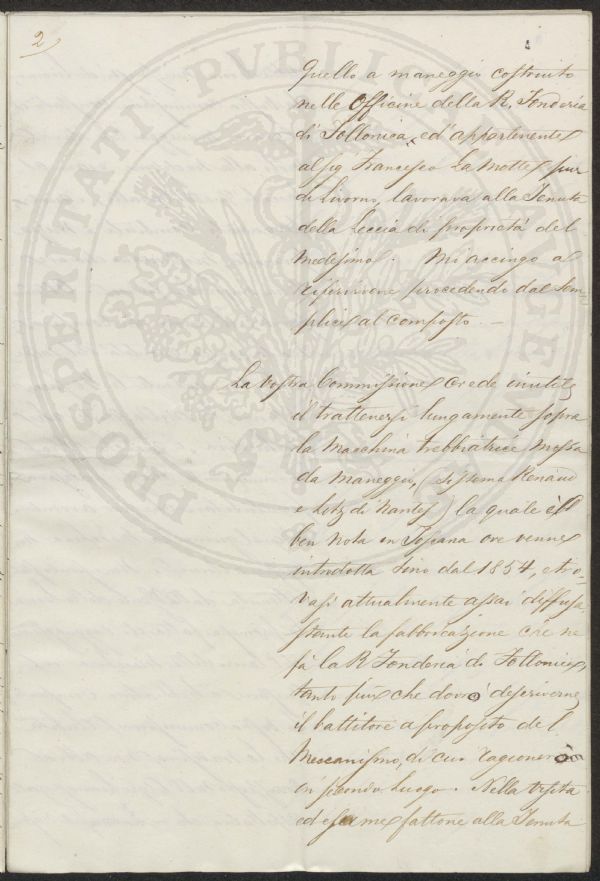 2
Quello a maneggio costruito
nelle Officine della R. Fonderia
di Follonica, ed appartenente
al Sig Francesco La Motte pur
di Livorno, lavorava alla Tenuta
della Leccia di proprietà del
Medesimo. Mi accingo al
riferirvene procedendo dal Sem
plice al composto. —
La Vostra Commissione crede inutile
il trattenersi lungamente sopra
la Macchina trebbiatrice mossa
da Maneggio, (Sistema Renaud
e Lotz di Nantes) la quale è
ben nota in Toscana ove venne
introdotta sino dal 1854, e tro
vasi attualmente assai diffusa
stante la fabbricazione che ne
fà la R Fonderia di Follonica,
tanto più che dovrò descriverne
il battitore a proposito del
Meccanismo, di cui ragionerò
in secondo luogo. Nella visita
ed esame fattone alla Tenuta
PROSPERITATI PVBLICAE AVGENDAE